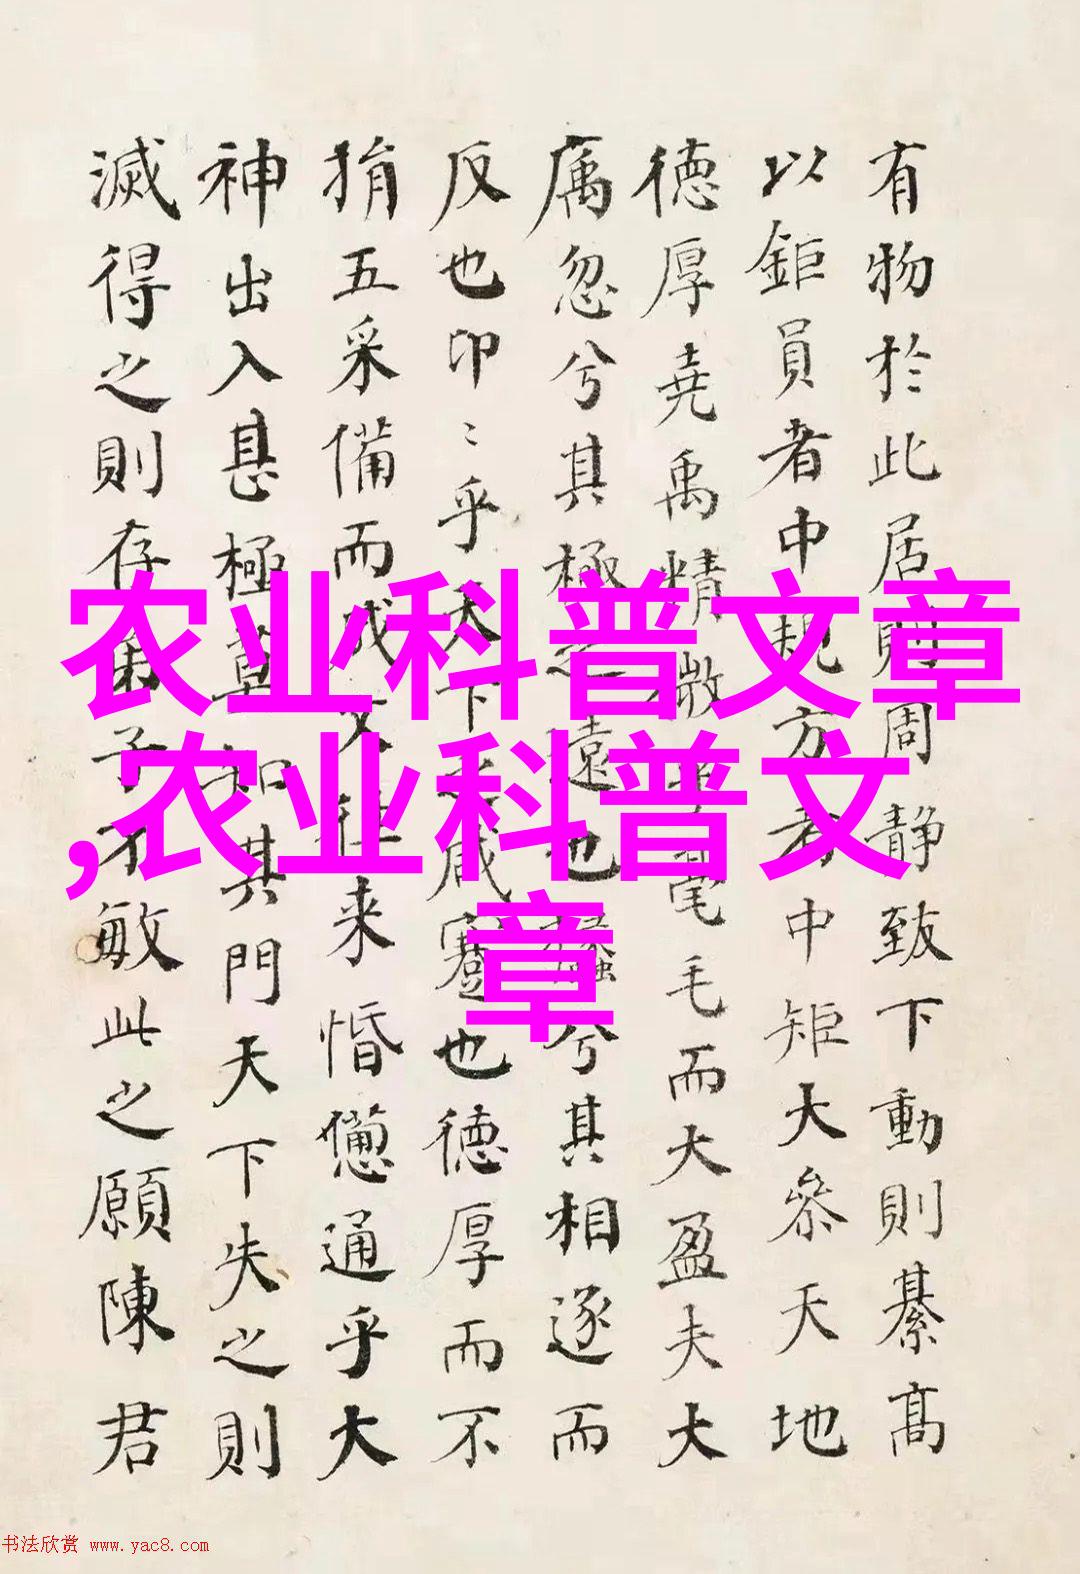 有物於此居則周靜致下動則綦高
以鉅員者中規方者中矩大參天地
德厚堯禹精微乎毫毛而大盈夫大
厲忽兮其極之遠也攭兮其相逐而
反也卬〻乎天下之咸蹇也德厚而不
捐五采備而成文往来惛憊通乎大
神出入甚極莫知其門天下失之則
滅得之則存弟子不敏此之願陳君
农业科普文章
,农业科普文
章
书法欣赏 www.yac8.com